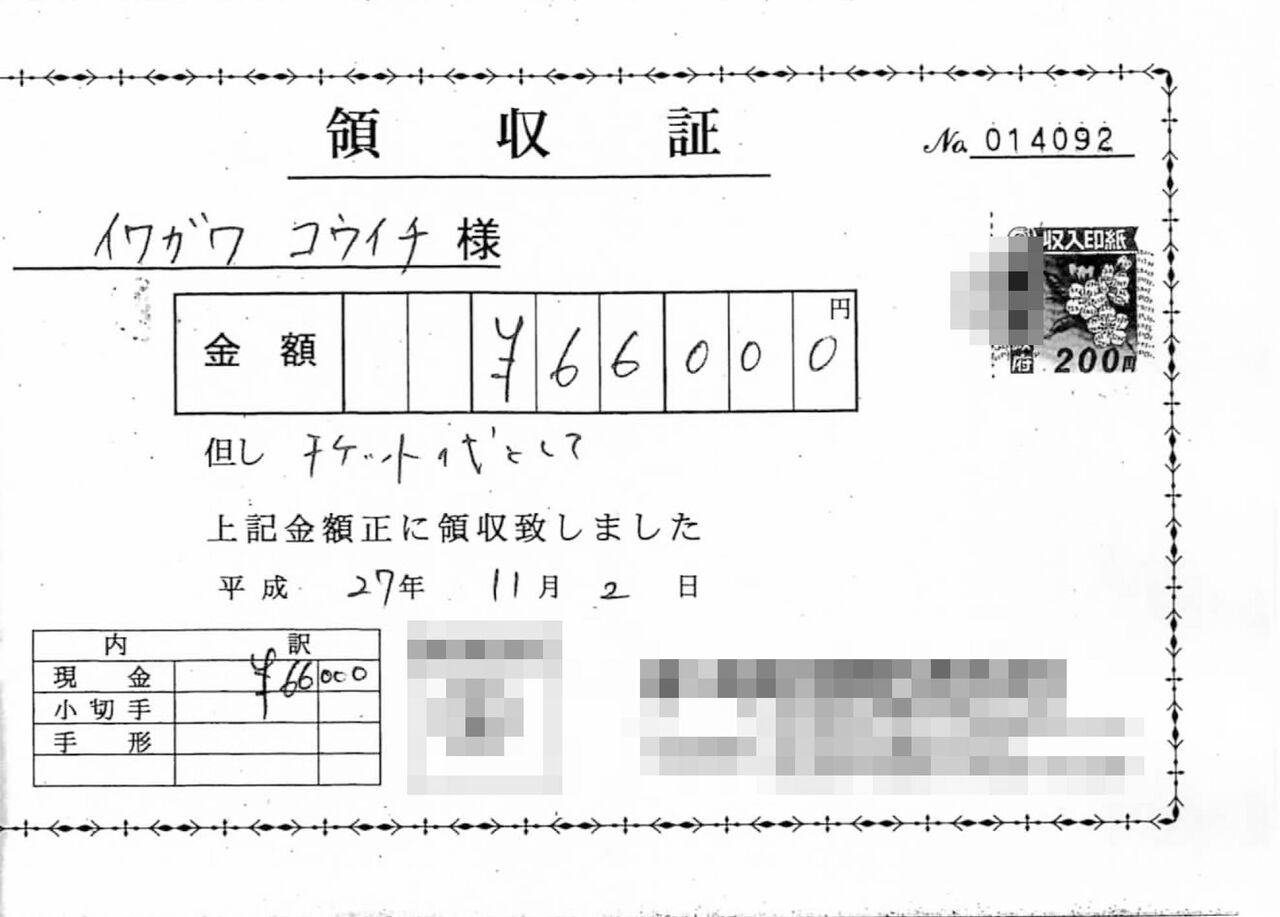 領収証
No. 014092
イワガワ コウイチ 様
収入印紙
200円
金額 ¥66000円
但し チケット代として
上記金額正に領収致しました
平成 27年 11月 2日
内訳
現金 ¥66000
小切手
手形